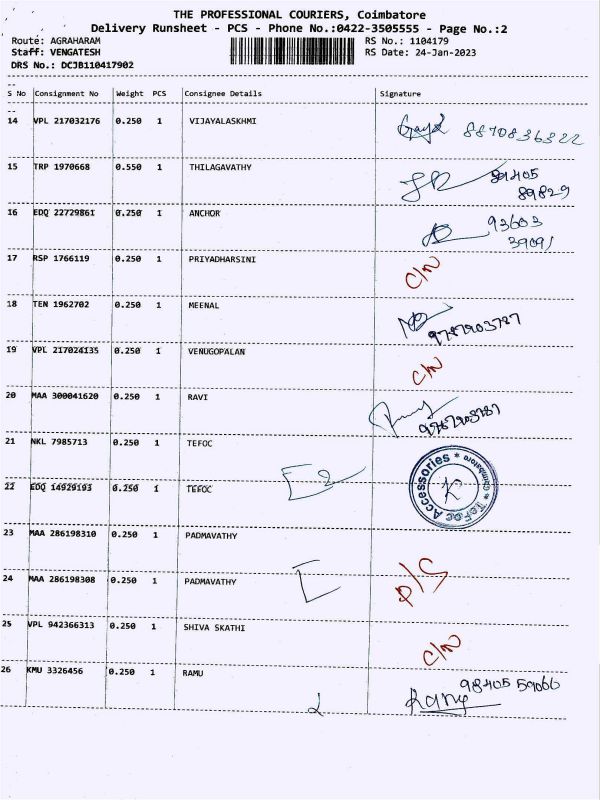 THE PROFESSIONAL COURIERS, Coimbatore
Delivery Runsheet - PCS - Phone No.:0422-3505555 - Page No.:2
Route: AGRAHARAM RS No.: 1104179
Staff: VENGATESH RS Date: 24-Jan-2023
DRS No.: DCJB110417902
S No Consignment No Weight PCS Consignee Details Signature
14 VPL 217032176 0.250 1 VIJAYALASKHMI 8870836322
15 TRP 1970668 0.550 1 THILAGAVATHY 89405
89829
16 EDQ 22729861 0.250 1 ANCHOR 93603
39091
17 RSP 1766119 0.250 1 PRIYADHARSINI C/N
18 TEN 1962702 0.250 1 MEENAL 9787903787
19 VPL 217024135 0.250 1 VENUGOPALAN C/N
20 MAA 300041620 0.250 1 RAVI 9787903787
21 NKL 7985713 0.250 1 TEFOC
TeFoc Accessories * Coimbatore *
22 EDQ 14929193 0.250 1 TEFOC
23 MAA 286198310 0.250 1 PADMAVATHY
24 MAA 286198308 0.250 1 PADMAVATHY D/S
25 VPL 942366313 0.250 1 SHIVA SKATHI C/N
26 KMU 3326456 0.250 1 RAMU 98405 59066